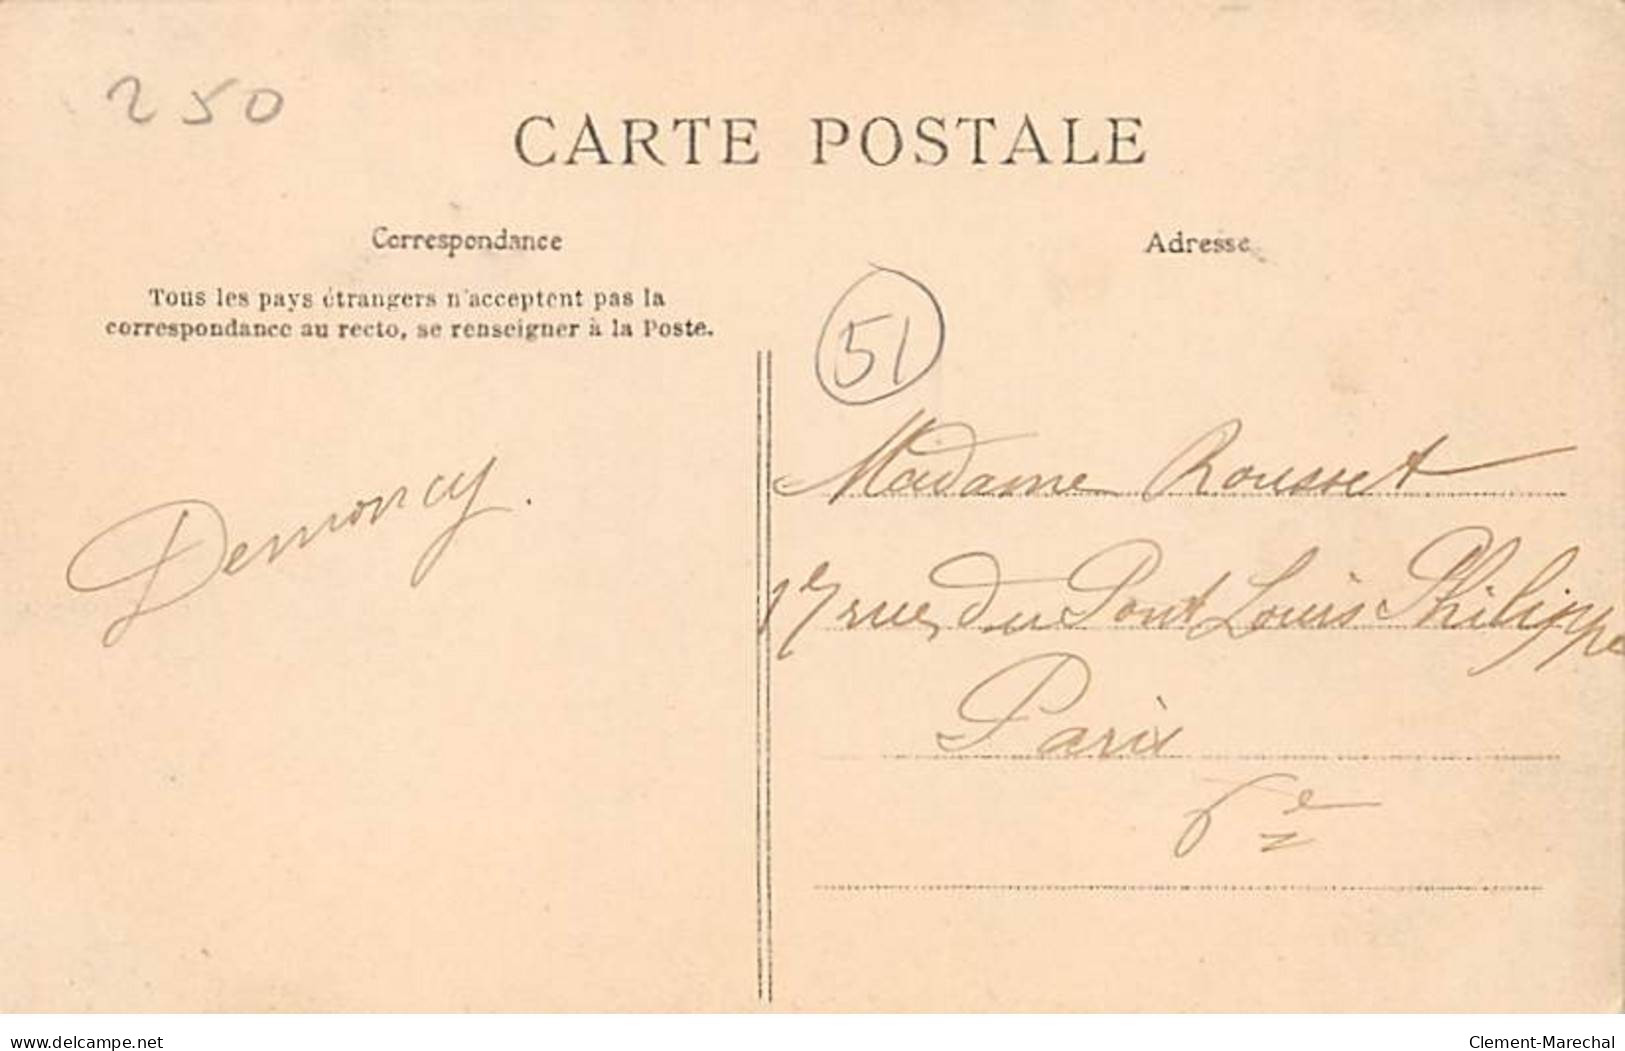 250
CARTE POSTALE
Correspondance
Tous les pays étrangers n'acceptent pas la
correspondance au recto, se renseigner à la Poste.
Demoncy.
Adresse
51
Madame Rousset
17 rue du Pont Louis Philippe
Paris
delcampe.net
Clement-Marechal